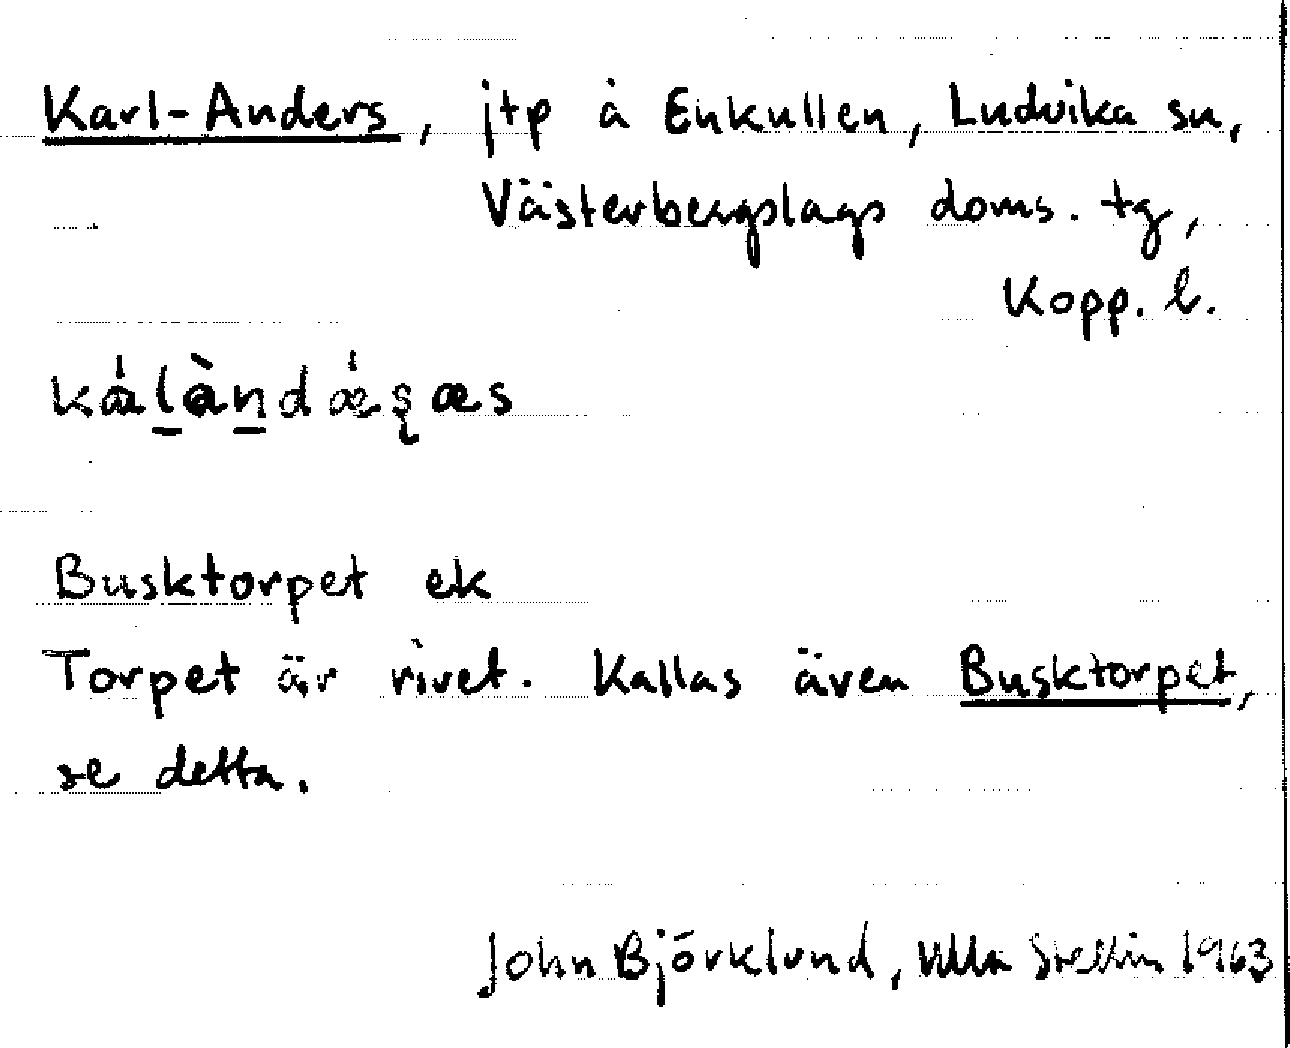 Karl-Anders, jtp å Enkullen, Ludvika sn,
Västerbergslags doms. tg,
Kopp. l.
Busktorpet ek
Torpet är rivet. Kallas även Busktorpet,
se detta.
John Björklund, Ulla 1963